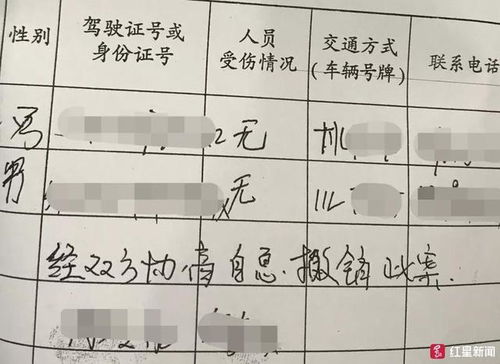 性别 驾驶证号或身份证号 人员受伤情况 交通方式(车辆号牌) 联系电话
男 2 无 川
男 无 川
经双方协商自息.撤销此案.
红星新闻